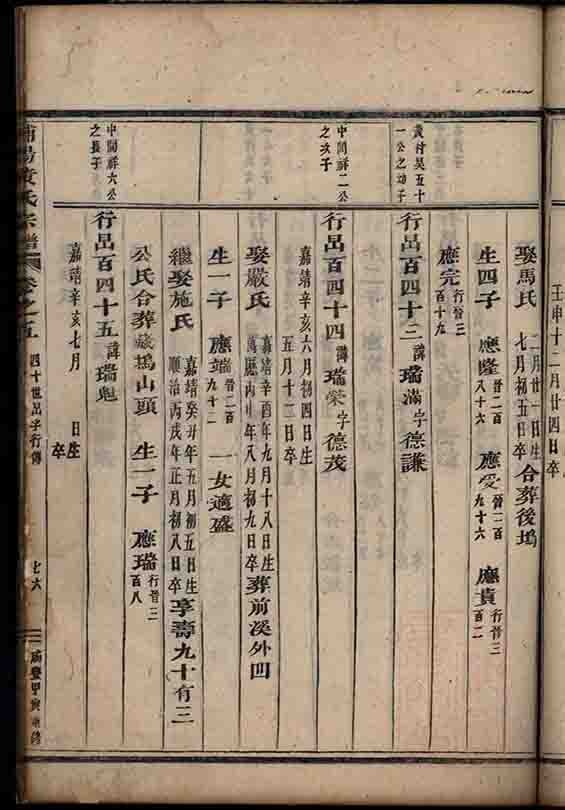 壬申十二月廿四日卒
娶馬氏 二月廿一日生 七月初五日卒 合葬後塢
生四子 應隆 晉二百八十六 應受 晉二百九十六 應貴 行晉三百二
應完 行晉三百十九
黃村吳五十一公之幼子
行呂百四十三 諱 瑞滿 字 德謙
中間祥二公之次子
行呂百四十四 諱 瑞榮 字 德茂
嘉靖辛亥六月初四日生
五月十二日卒
娶嚴氏 嘉靖辛酉年九月十八日生 萬曆丙年八月初九日卒 葬前溪外凹
生一子 應端 晉二百九十二 一女適盛
繼娶施氏 嘉靖癸丑年五月初五日生 順治丙戌年正月初八日卒 享壽九十有三
公氏合葬 塢山頭 生一子 應瑞 行晉三百八
中間祥六公之長子
行呂百四十五 諱 瑞魁
嘉靖辛亥七月 日生
卒
浦陽黃氏宗譜 卷之五 四十世呂字行傳 七六 咸豐甲寅重修